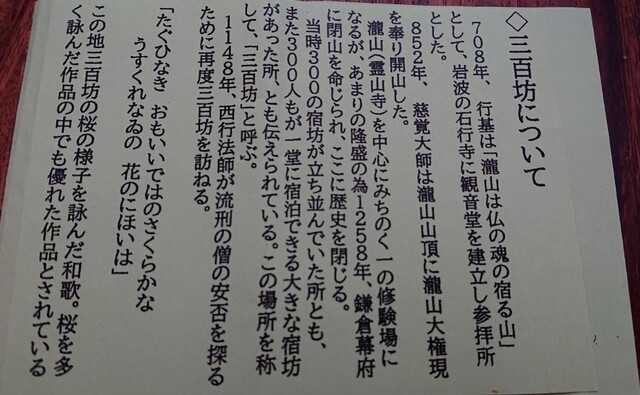 ◇三百坊について
708年、行基は「瀧山は仏の魂の宿る山」
として、岩波の石行寺に観音堂を建立し参拝所
とした。
852年、慈覚大師は瀧山山頂に瀧山大権現
を奉り開山した。
瀧山(霊山寺)を中心にみちのく一の修験場に
なるが、あまりの隆盛の為1258年、鎌倉幕府
に閉山を命じられ、ここに歴史を閉じる。
当時300の宿坊が立ち並んでいた所とも、
また300人もが一堂に宿泊できる大きな宿坊
があった所、とも伝えられている。この場所を称
して、「三百坊」と呼ぶ。
1148年、西行法師が流刑の僧の安否を探る
ために再度三百坊を訪ねる。
「たぐひなき おもいいではのさくらかな
うすくれなゐの 花のにほいは」
この地三百坊の桜の様子を詠んだ和歌。桜を多
く詠んだ作品の中でも優れた作品とされている